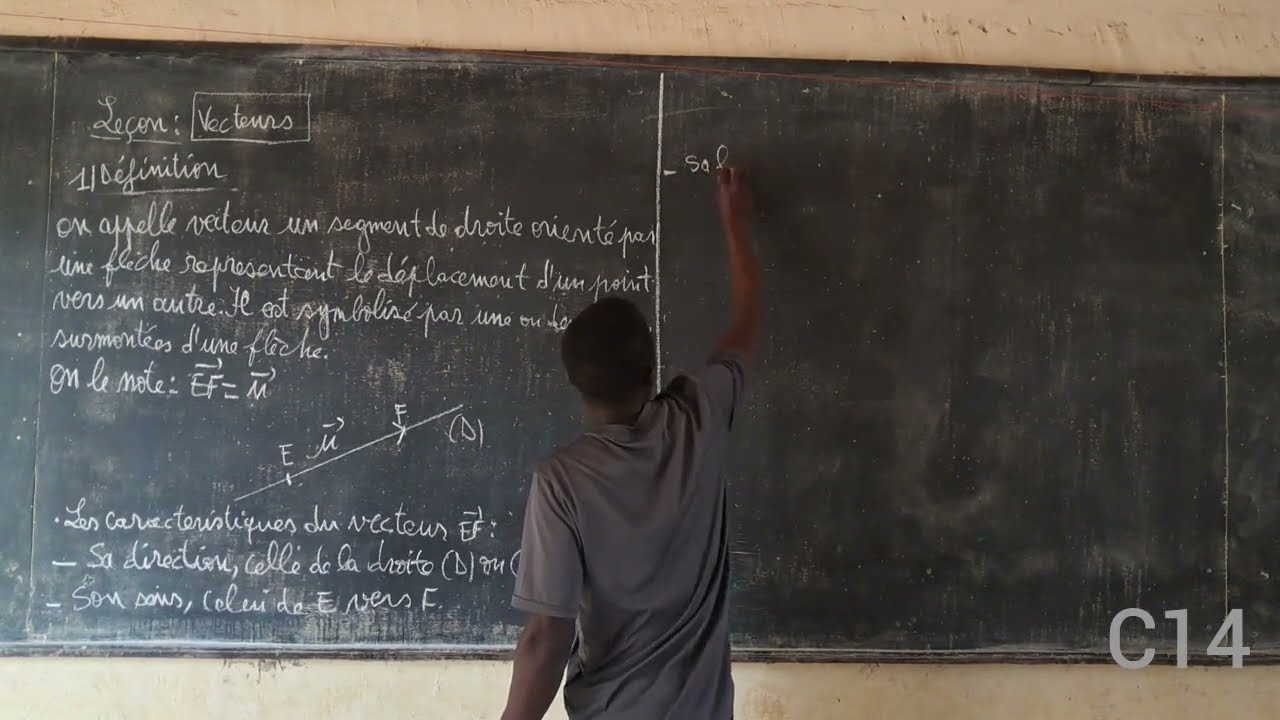 Leçon: Vecteurs
1) Définition
on appelle vecteur un segment de droite orienté par
une flèche representant le déplacement d'un point
vers un autre. Il est symbolisé par une ou
surmontées d'une flèche.
on le note: EF⃗ = u⃗
F
u⃗
(D)
E
• Les caracteristiques du vecteur EF⃗:
– Sa direction, celle de la droite (D) ou (
– Son sens, celui de E vers F.
- sa l
C14